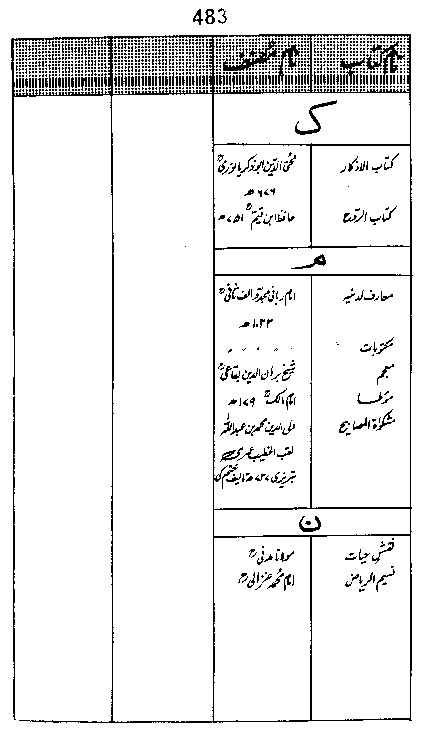 483
نام کتاب نام مصنف
ک
کتاب الاذکار محی الدین ابوذکریا نوویؒ
۶۷۶ ھ
کتاب الروح حافظ ابن قیمؒ ۷۵۱ ھ
م
معارف لدنیہ امام ربانی مجدد الف ثانیؒ
۱۰۳۳ ھ
مکتوبات " " " "
معجم شیخ برہان الدین بقاعیؒ
مؤطا امام مالکؒ ۱۷۹ ھ
مشکوٰۃ المصابیح ولی الدین محمد بن عبداللہ
لقب الخطیب عمری
تبریزی ۷۳۷ ھ تالیف ختم کی
ن
نقش حیات مولانا مدنیؒ
نسیم الریاض امام محمد غزالیؒ